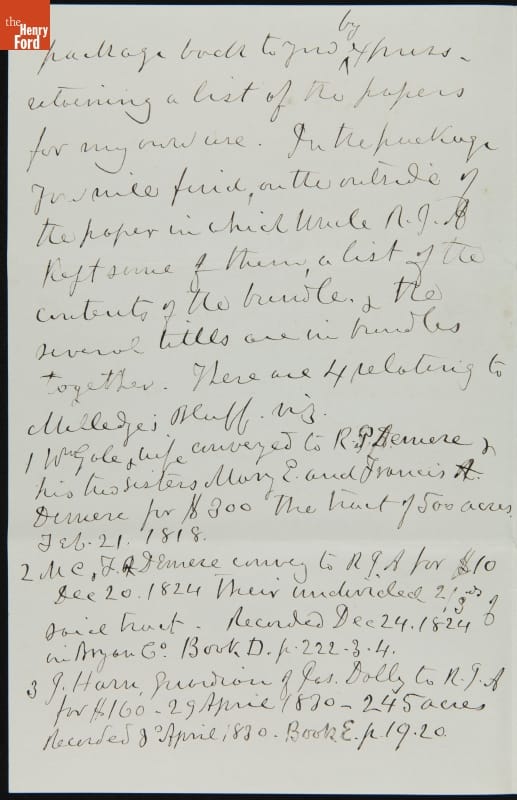 the
Henry
Ford
package back to you by express -
retaining a list of the papers
for my own use. In the package
you will find, on the outside of
the paper in which Uncle R. J. A
Kept some of them, a list of the
contents of the bundle. & the
several titles are in bundles
together. There are 4 relating to
Milledge's Bluff. viz.
1 Wm Gale & wife conveyed to R. P. Demere &
his two sisters Mary E. and Francis A.
Demere for $300 The tract of 500 acres.
Feb. 21. 1818.
2 M C, F A Demere convey to R J A for $10
Dec 20. 1824 Their undivided 2/3ds of
said tract. Recorded Dec 24. 1824
in Bryan Co. Book D. p. 222-3-4.
3 J. Harn, Guardion of Jas. Dolly to R. J. A
for $160 - 29 April 1830 - 245 acres
Recorded April 1830. Book E. p 19.20